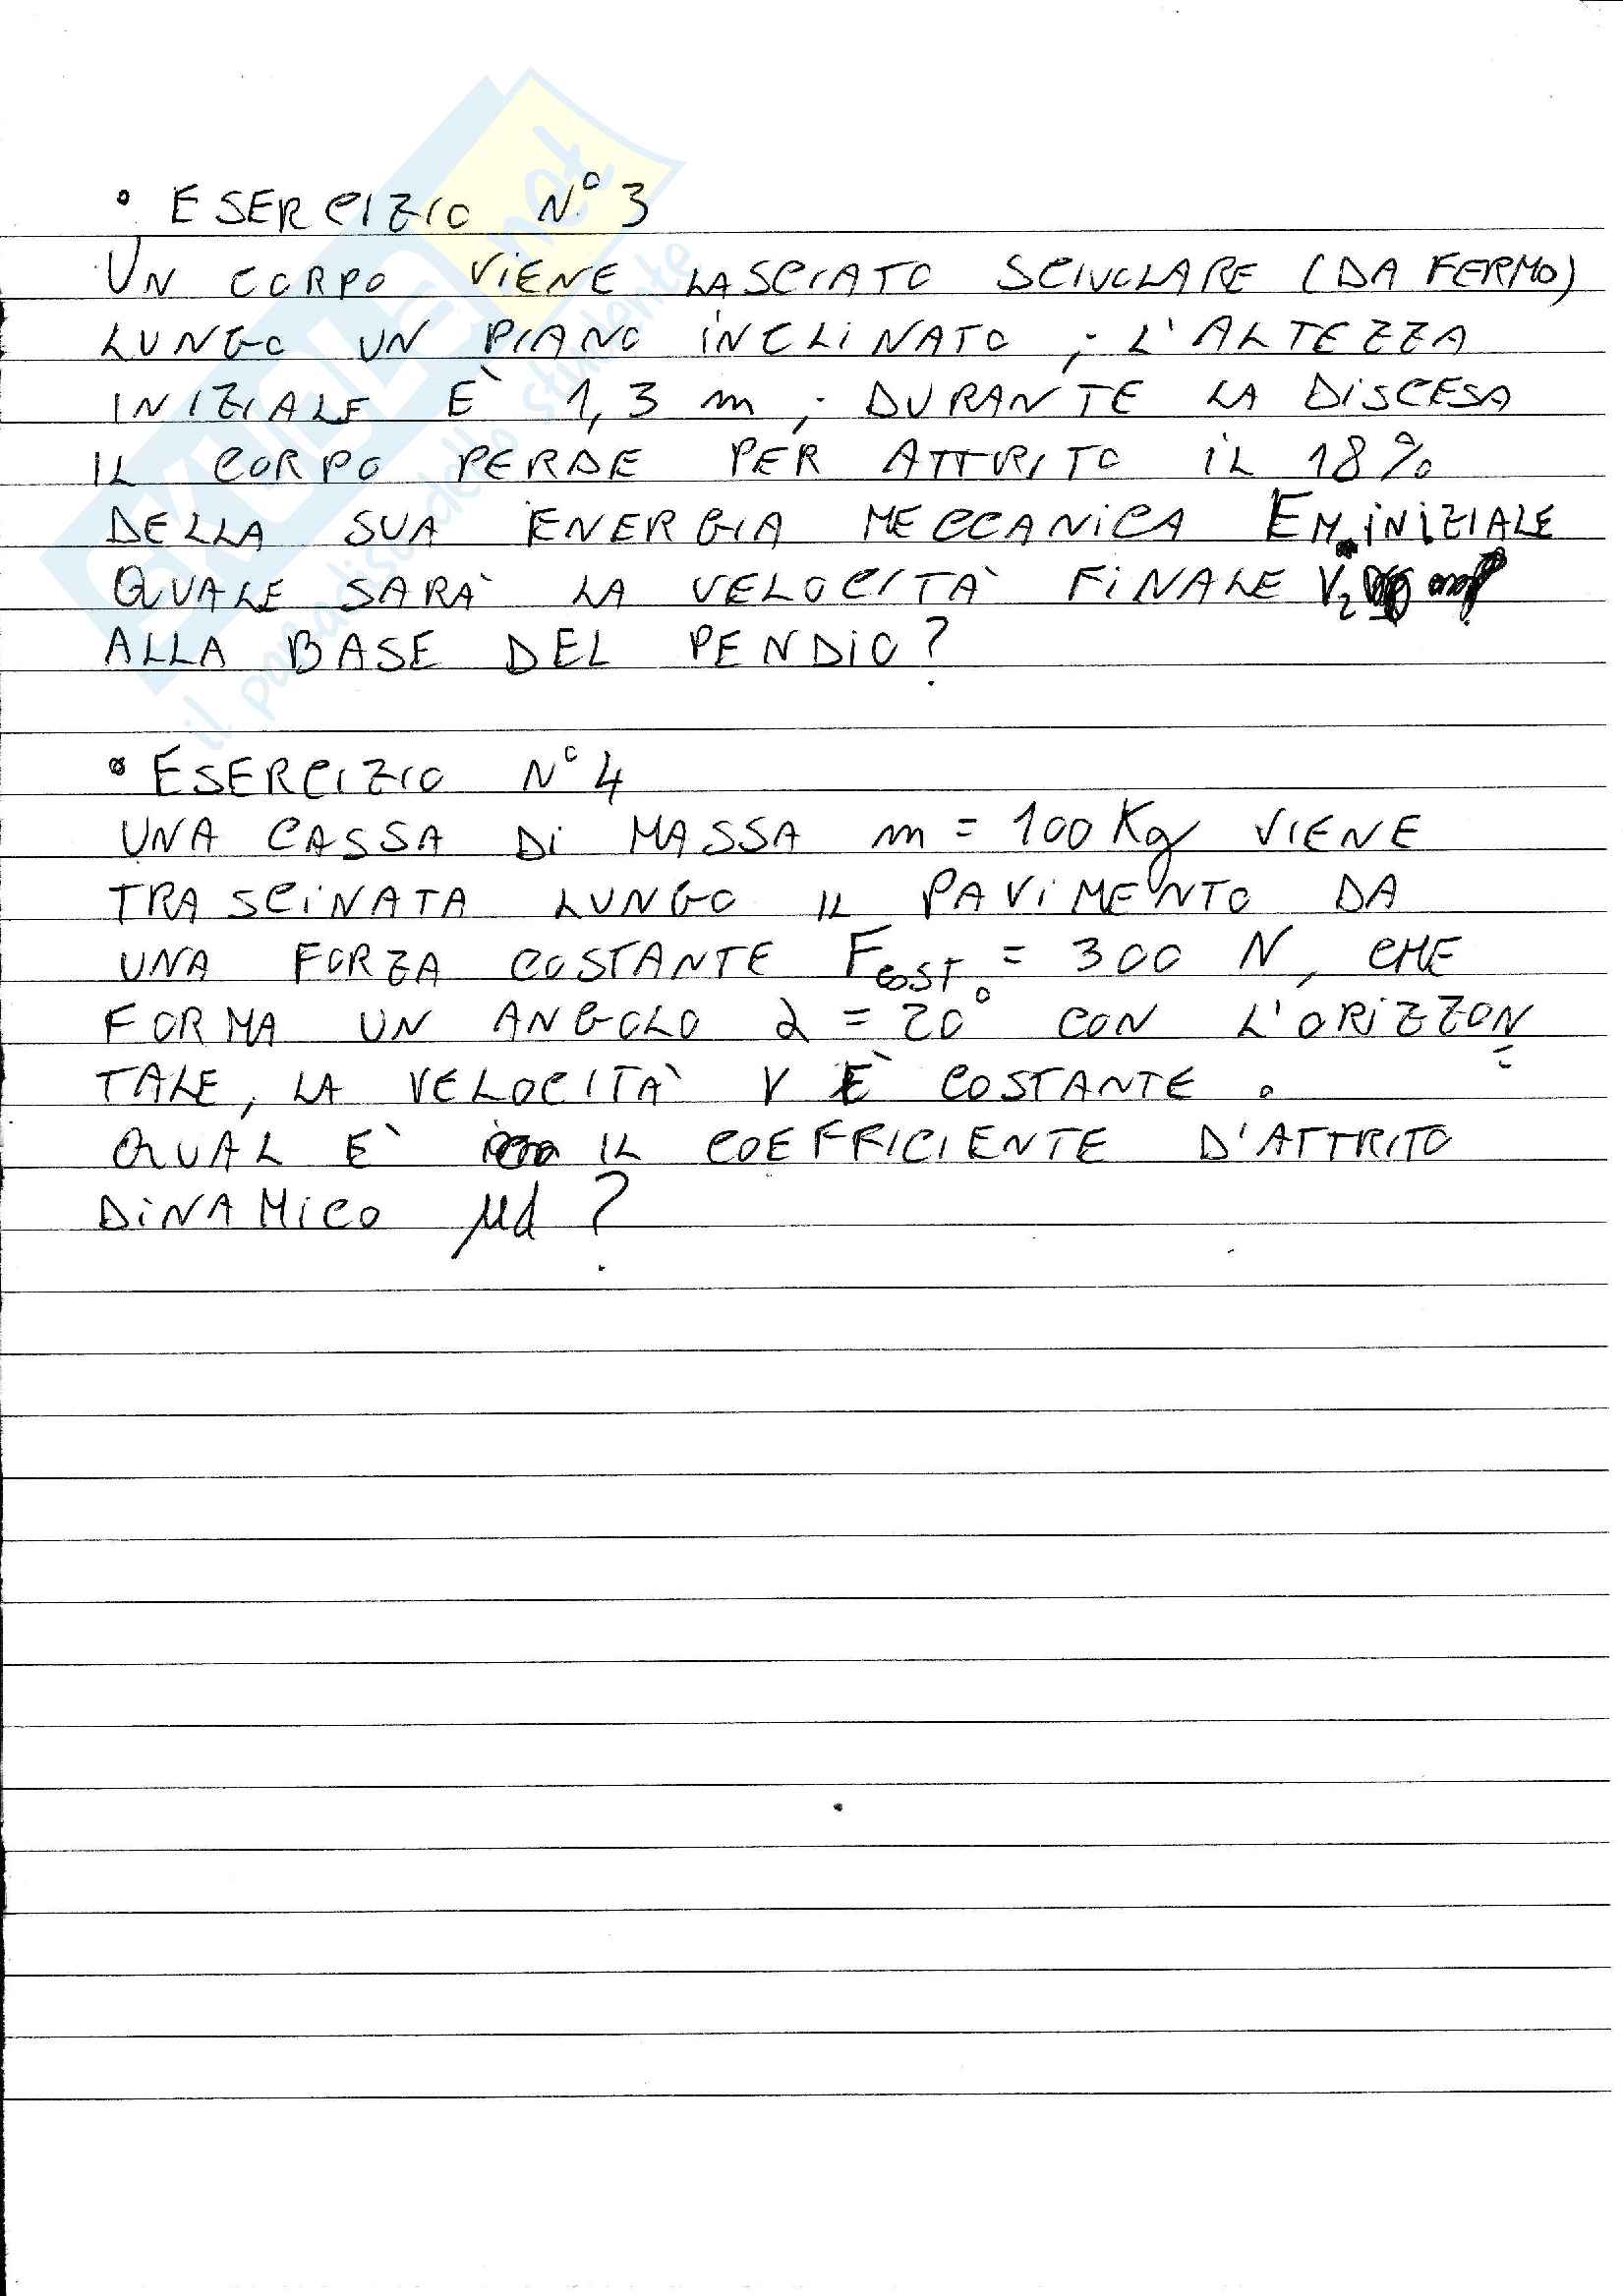 • ESERCIZIO N° 3
UN CORPO VIENE LASCIATO SCIVOLARE (DA FERMO)
LUNGO UN PIANO INCLINATO ; L'ALTEZZA
INIZIALE È 1,3 m ; DURANTE LA DISCESA
IL CORPO PERDE PER ATTRITO IL 18%
DELLA SUA ENERGIA MECCANICA EM INIZIALE
QUALE SARÀ LA VELOCITÀ FINALE V2
ALLA BASE DEL PENDIO?
• ESERCIZIO N° 4
UNA CASSA DI MASSA m = 100 Kg VIENE
TRASCINATA LUNGO IL PAVIMENTO DA
UNA FORZA COSTANTE FCOST = 300 N, CHE
FORMA UN ANGOLO α = 20° CON L'ORIZZON=
TALE, LA VELOCITÀ V È COSTANTE .
QUAL È IL COEFFICIENTE D'ATTRITO
DINAMICO μd ?
SKUOLA.net
il paradiso dello studente